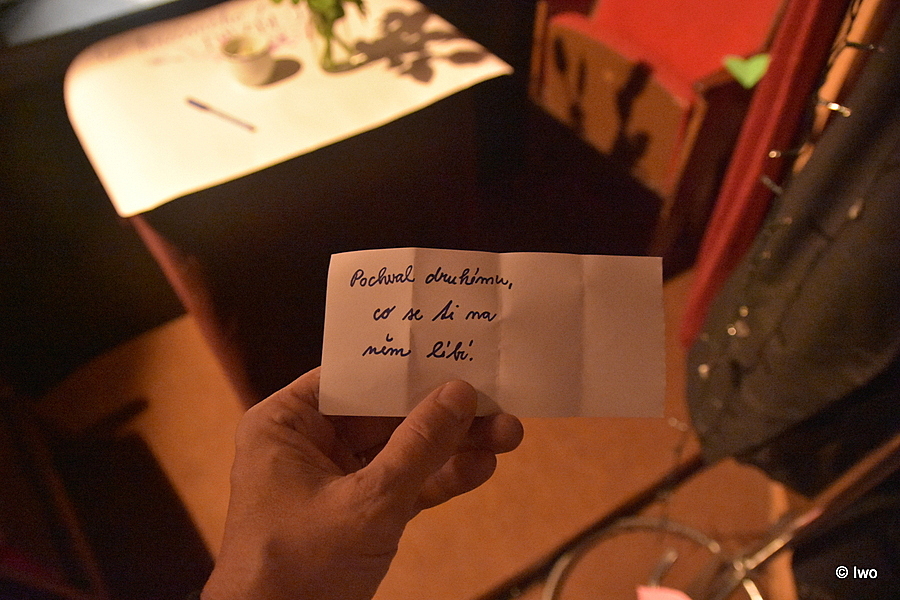 Pochval druhému,
co se ti na
něm líbí.
© Iwo